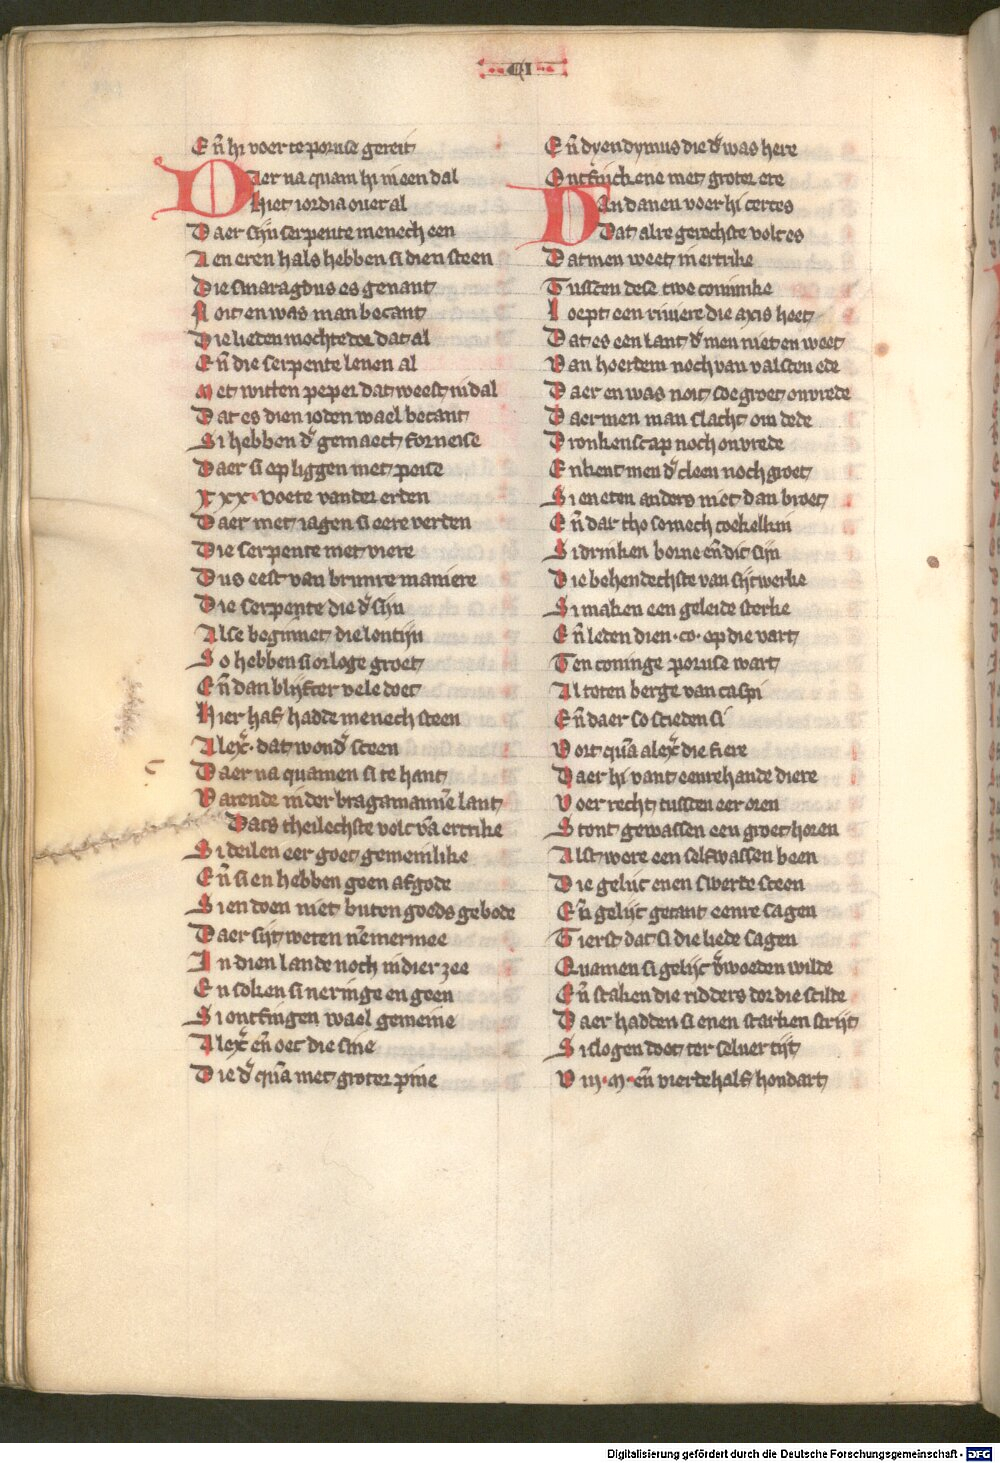 CI
Eñ hi voer te poruse gereit
Daer na quam hi in een dal
Hiet iordia ouer al
Daer sijn serpente menech een
Aen eren hals hebben si dien steen
Die smaragdus es genant
Noit en was man becant
Die lieden mochte dor dat al
Eñ die serpente leuen al
Met witten peper dat weest in dal
Dat es dien ioden wael becant
Si hebben dʼ gemaect forneise
Daer si op liggen met peise
XXX· voete vander erden
Daer met iagen si eere verden
Die serpente met viere
Dus eest van brunre maniere
Die serpente die dʼ sijn
Alse beginnet die lentijn
So hebben si orloge groet
Eñ dan blijfter vele doet
Hier haf hadde menech steen
Alexʼ· dat wondʼ steen
Daer na quamen si te hant
Varende in der bragamanniē lant
Dats theilechste volc vā ertrike
Si deilen eer goet gemeinlike
Eñ si en hebben geen afgode
Si en doen niet buten goeds gebode
Daer sijt weten nēmermee
In dien lande noch in dier zee
En soken si neringe en geen
Si ontfingen wael gemeine
Alexʼ eñ oec die sine
Die dʼ quā met groter pine
Eñ dyendymus die dʼ was here
Ontfinck ene met groter ere
Van danen voer hi certes
Dat alre gerechste volc es
Datmen weet in ertrike
Tussen dese twe coninike
Loept een riuiere die axis heet
Dat es een lant dʼ men niet en weet
Van hoerdem noch van valscen ede
Daer en was noit soe groet onvrede
Daer men man slacht om dede
Dronkenscap noch onvrede
En kent men dʼ cleen noch groet
Si en eten anders niet dan broet
Eñ dar tho somech coekelkin
Si drinken borne eñ dit sijn
Die behendechste van sijtwerke
Si maken een geleide sterke
Eñ leden dien ·co· op die vart
Ten coninge poruse wart
Al toten berge van caspi
Eñ daer so scieden si
Voit quā alexʼ die fiere
Daer hi vant eenrehande diere
Voer recht tussen eer oren
Stont gewassen een groet horen
Alst were een self wassen been
Die gelijc enen swerde sceen
Eñ gelijc getant eenre sagen
Tierst dat si die liede sagen
Quamen si gelijc vʼwoeden wilde
Eñ staken die ridders dor die scilde
Daer hadden si enen starken strijt
Si slogen doot ter seluer tijt
VIII·M· eñ vierdehalf hondart
Digitalisierung gefördert durch die Deutsche Forschungsgemeinschaft - DFG